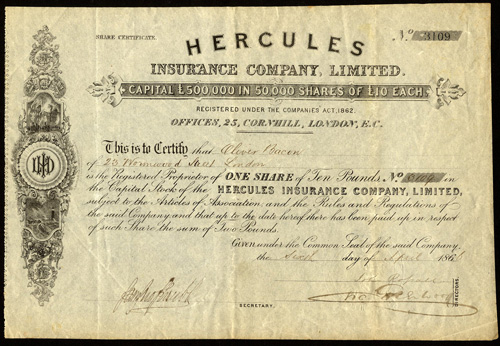 SHARE CERTIFICATE.
No 3109
HERCULES
INSURANCE COMPANY, LIMITED.
CAPITAL £500,000 IN 50,000 SHARES OF £10 EACH.
REGISTERED UNDER THE COMPANIES ACT, 1862.
OFFICES, 25, CORNHILL, LONDON, E.C.
This is to Certify that Oliver Bacon
of 23 Wormwood Street London
is the Registered Proprietor of ONE SHARE of Ten Pounds, No 3109 in
the Capital Stock of the HERCULES INSURANCE COMPANY, LIMITED,
subject to the Articles of Association, and the Rules and Regulations of
the said Company, and that up to the date hereof there has been paid up in respect
of such Share the sum of Two Pounds.
Given under the Common Seal of the said Company,
the Sixth day of April 186
SECRETARY.
DIRECTORS.